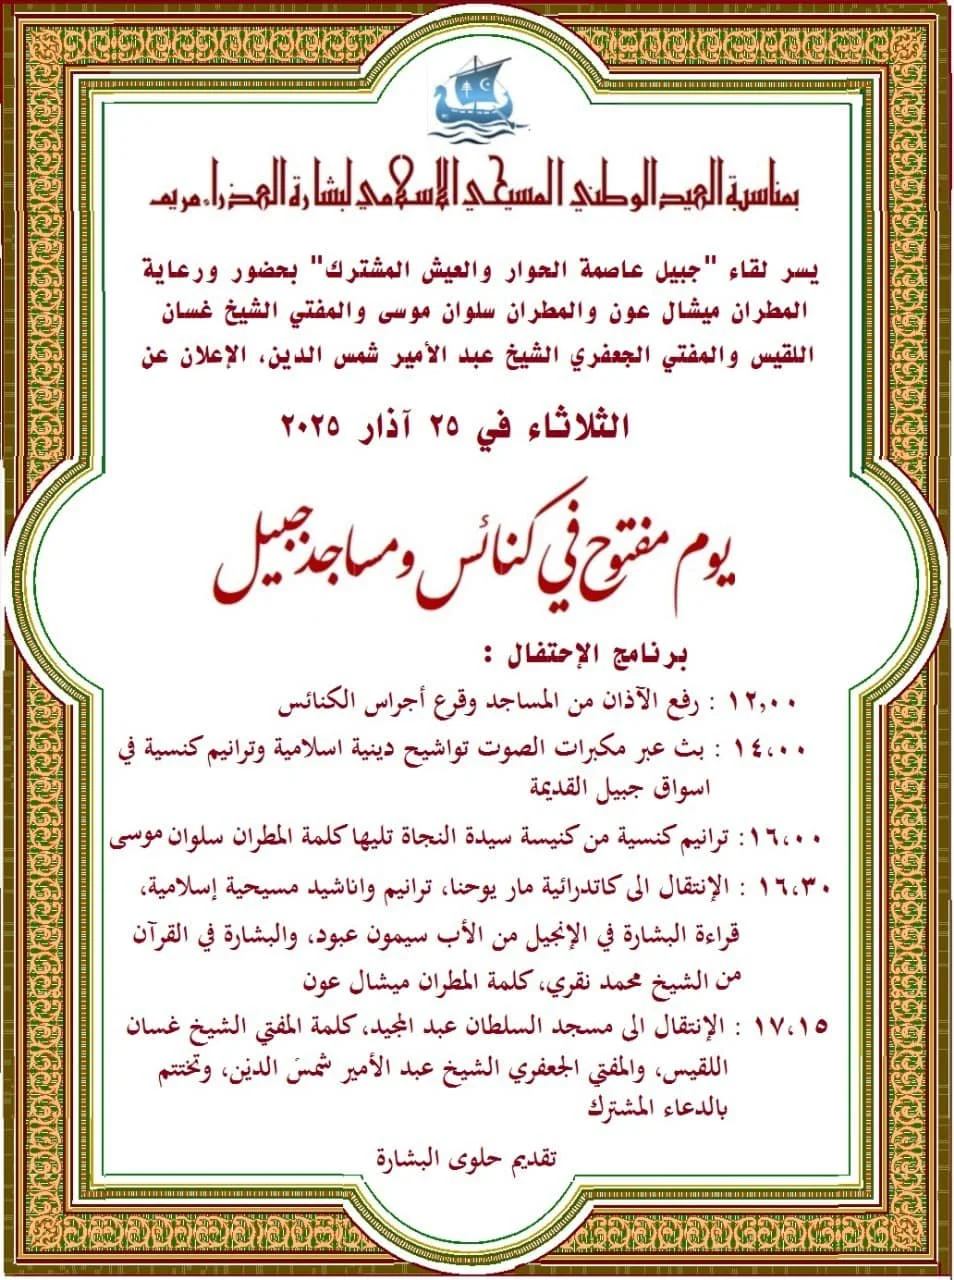 بمناسبة العيد الوطني المسيحي الإسلامي لبشارة العذراء مريم
يسر لقاء "جبيل عاصمة الحوار والعيش المشترك" بحضور ورعاية
المطران ميشال عون والمطران سلوان موسى والمفتي الشيخ غسان
اللقيس والمفتي الجعفري الشيخ عبد الأمير شمس الدين، الإعلان عن
الثلاثاء في ٢٥ آذار ٢٠٢٥
يوم مفتوح في كنائس ومساجد جبيل
برنامج الإحتفال :
١٢,٠٠ : رفع الآذان من المساجد وقرع أجراس الكنائس
١٤،٠٠ : بث عبر مكبرات الصوت تواشيح دينية اسلامية وترانيم كنسية في
اسواق جبيل القديمة
١٦،٠٠: ترانيم كنسية من كنيسة سيدة النجاة تليها كلمة المطران سلوان موسى
١٦،٣٠ : الإنتقال الى كاتدرائية مار يوحنا، ترانيم واناشيد مسيحية إسلامية،
قراءة البشارة في الإنجيل من الأب سيمون عبود، والبشارة في القرآن
من الشيخ محمد نقري، كلمة المطران ميشال عون
١٧،١٥ : الإنتقال الى مسجد السلطان عبد المجيد، كلمة المفتي الشيخ غسان
اللقيس، والمفتي الجعفري الشيخ عبد الأمير شمس الدين، وتختتم
بالدعاء المشترك
تقديم حلوى البشارة